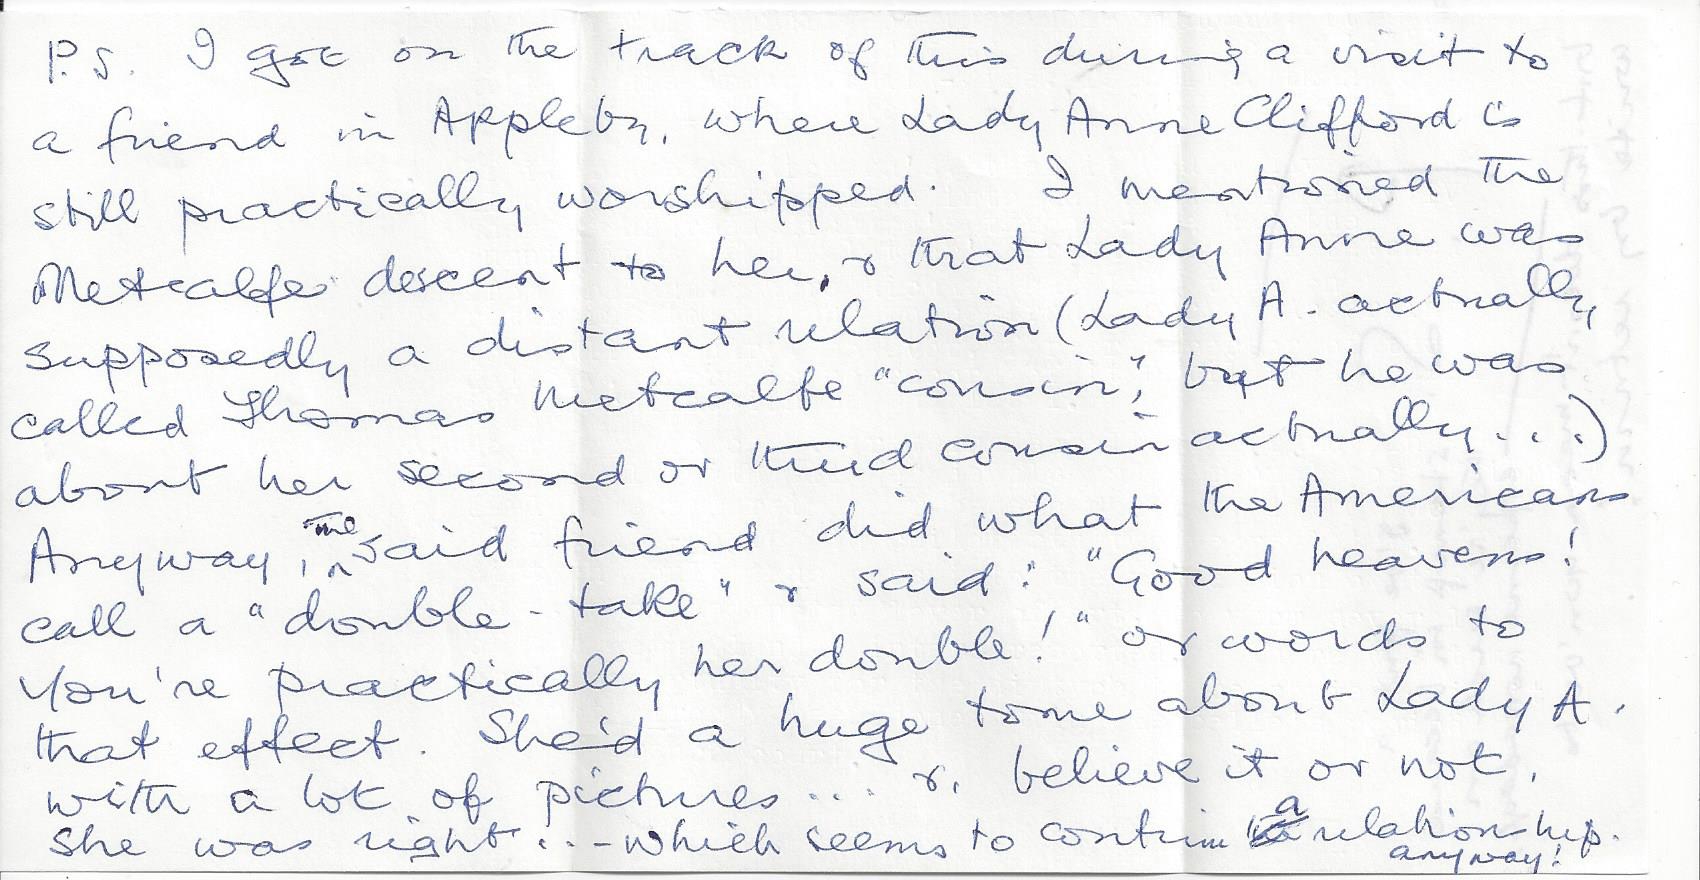 P.S. I got on the track of this during a visit to
a friend in Appleby, where Lady Anne Clifford is
still practically worshipped. I mentioned the
Metcalfe descent to her, & that Lady Anne was
supposedly a distant relation (Lady A. actually
called Thomas Metcalfe "cousin", but he was
about her second or third cousin actually...)
Anyway, the said friend did what the Americans
call a "double-take" & said: "Good heavens!
You're practically her double!" or words to
that effect. She'd a huge tome about Lady A.
with a lot of pictures... &, believe it or not,
she was right... - which seems to confirm a relationship.
anyway!